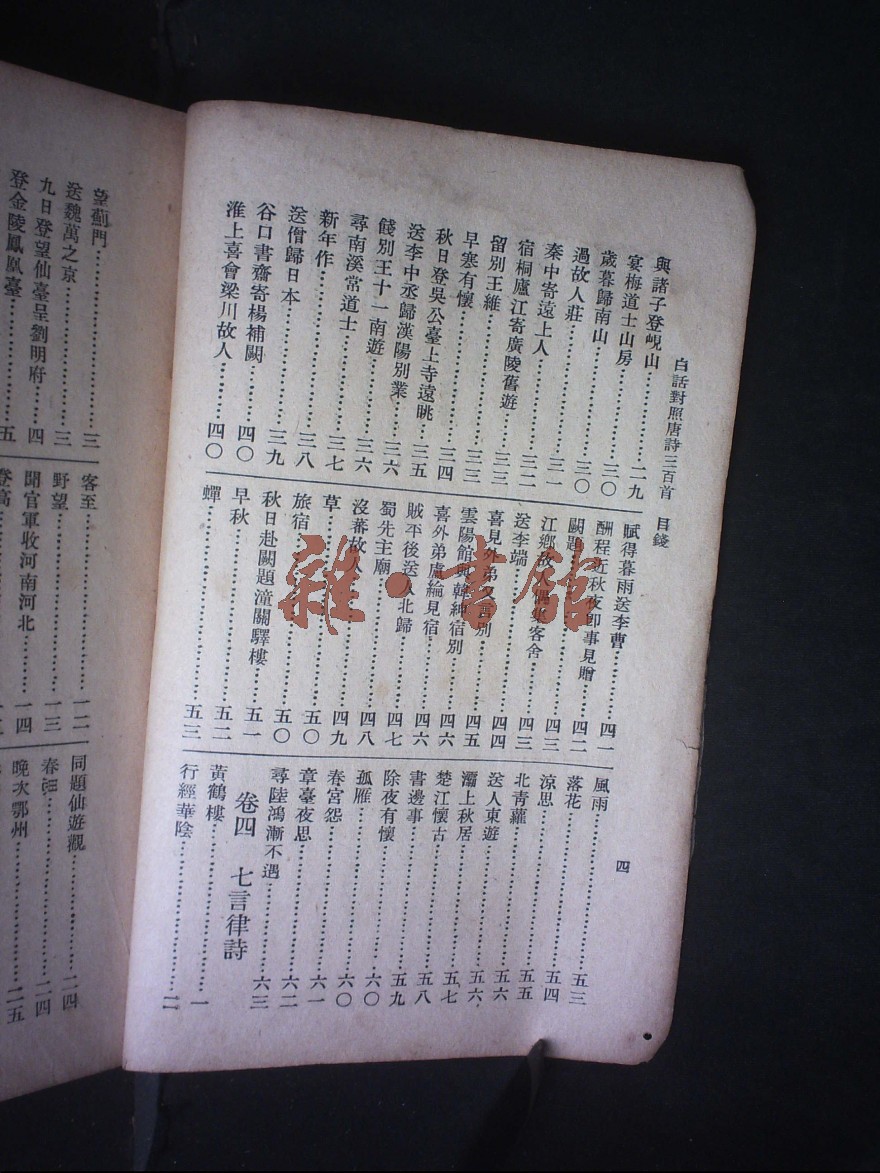 白話對照唐詩三百首 目錄
四
與諸子登峴山……二九
宴梅道士山房……三〇
歲暮歸南山……三〇
過故人莊……三一
秦中寄遠上人……三二
宿桐廬江寄廣陵舊遊……三三
留別王維……三三
早寒有懷……三四
秋日登吳公臺上寺遠眺……三五
送李中丞歸漢陽別業……三六
餞別王十一南遊……三六
尋南溪常道士……三七
新年作……三八
送僧歸日本……三九
谷口書齋寄楊補闕……四〇
淮上喜會梁川故人……四〇
賦得暮雨送李曹……四一
酬程近秋夜即事見贈……四二
闕題……四三
江鄉故人偶集客舍……四三
送李端……四四
喜見外弟又言別……四五
雲陽館與韓紳宿別……四六
喜外弟盧綸見宿……四六
賊平後送人北歸……四七
蜀先主廟……四八
沒蕃故人……四九
草……五〇
旅宿……五〇
秋日赴闕題潼關驛樓……五一
早秋……五二
蟬……五三
風雨……五三
落花……五四
涼思……五五
北青蘿……五六
送人東遊……五六
灞上秋居……五七
楚江懷古……五八
書邊事……五九
除夜有懷……六〇
孤雁……六〇
春宮怨……六一
章臺夜思……六二
尋陸鴻漸不遇……六三
卷四 七言律詩
黃鶴樓……一
行經華陰……二
望薊門……三
送魏萬之京……三
九日登望仙臺呈劉明府……四
登金陵鳳凰臺……五
客至……一二
野望……一三
聞官軍收河南河北……一四
登高……
同題仙遊觀……二四
春思……二四
晚次鄂州……二五
雜·書館